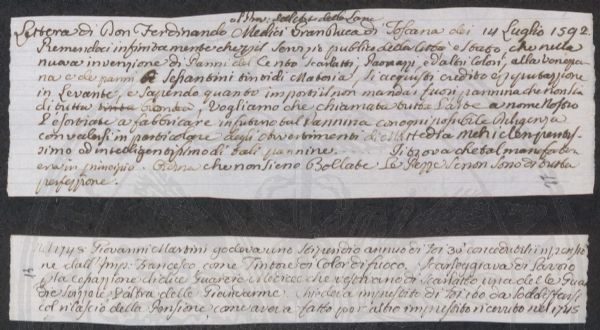 al Prov. dell'Arte della Lana
Lettera di Don Ferdinando Medici Granduca di Toscana dei 14 Luglio 1592.
Premendoci infinitamente che pel servizio publico della Città e Stato, che nella
nuova invenzione di Panni del Cento Scarlatti, Paonazzi, ed altri Colori, alla Venezia
na e de panni Sopantini tinti di Materia, si acquisti credito e reputazione
in Levante, e sapendo quanto importi il non mandar fuori pannina che non sia
di tutta tinta bontà. Vogliamo che chiamata tutta l'arte a nome Nostro
l'esortiate a fabbricare insieme tal Pannina con ogni possibile diligenza
con valersi in particolare degli avvertimenti di
simo ed intelligentissimo di tali pannine. Si trova che tal manifattura
era in principio. che non sieno Bollate le Pezze se non sono di tutta
perfezzione.
1748 Giovanni Martini godeva uno stipendio annuo di 30 conceduti in pensio
ne dall'Imp. Francesco, come Tintore di Color di fuoco, e Scarseggiava di lavoro
p. la cessazione di due Guardie che vestivano di Scarlatto una delle Guar
die l'altra delle Chiedeva imprestito di 160 da soddisfarsi
col rilascio della Pensione, come aveva fatto per altro imprestito ricevuto nel 1745